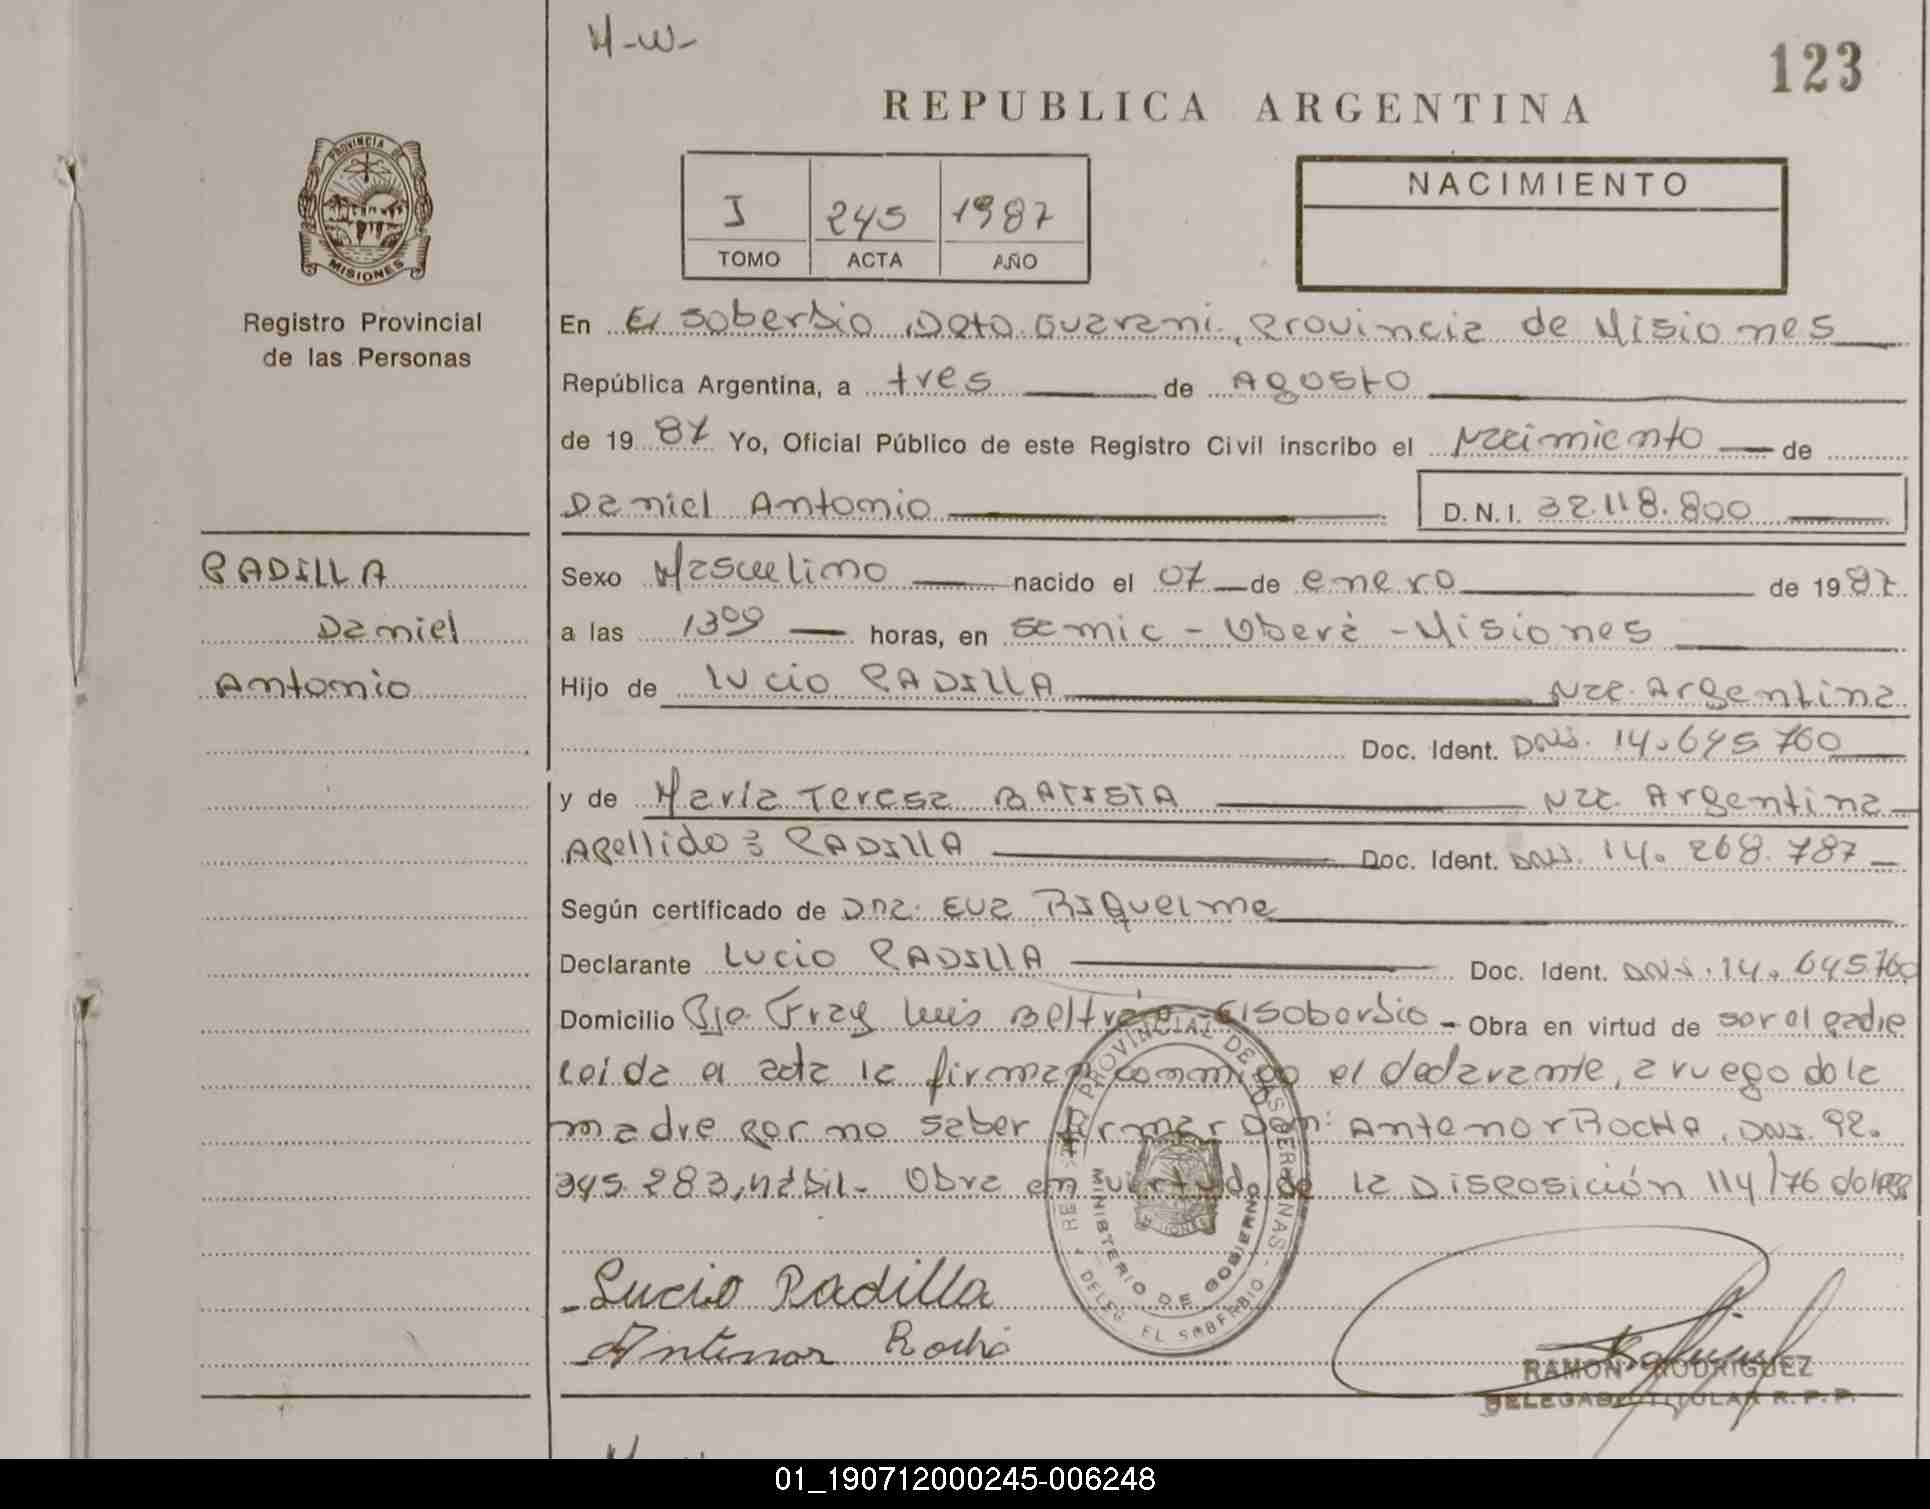 H-W-
123
REPUBLICA ARGENTINA
PROVINCIA DE
MISIONES
Registro Provincial
de las Personas
I 245 1987
TOMO ACTA AÑO
NACIMIENTO
En El Soberbio, Dpto. Guarani, Provincia de Misiones
República Argentina, a tres de Agosto
de 1987 Yo, Oficial Público de este Registro Civil inscribo el Nacimiento de
Daniel Antonio D.N.I. 32.118.800
PADILLA
Daniel
Antonio
Sexo Masculino nacido el 07 de enero de 1987
a las 1309 horas, en Samic - Oberá - Misiones
Hijo de Lucio PADILLA Nac. Argentina
Doc. Ident. DNI. 14.645.760
y de María Teresa BATISTA Nac. Argentina
Apellido: PADILLA Doc. Ident. DNI. 14.268.787
Según certificado de Dña. Eva Riquelme
Declarante Lucio PADILLA Doc. Ident. DNI. 14.645.760
Domicilio Pje. Fray Luis Beltrán - El Soberbio - Obra en virtud de ser el padre
Leida el acta la firman conmigo el declarante, a ruego de la
madre por no saber firmar Don: Antenor Rocha, DNI. 92.
345.283, hábil - Obra en virtud de la Disposición 114/76 del RPP
REGISTRO PROVINCIAL DE LAS PERSONAS - DELEG. EL SOBERBIO
MINISTERIO DE GOBIERNO
MISIONES
Lucio Padilla
Antenor Rocha
RAMON RODRIGUEZ
DELEGADO TITULAR R.P.P.
01_190712000245-006248